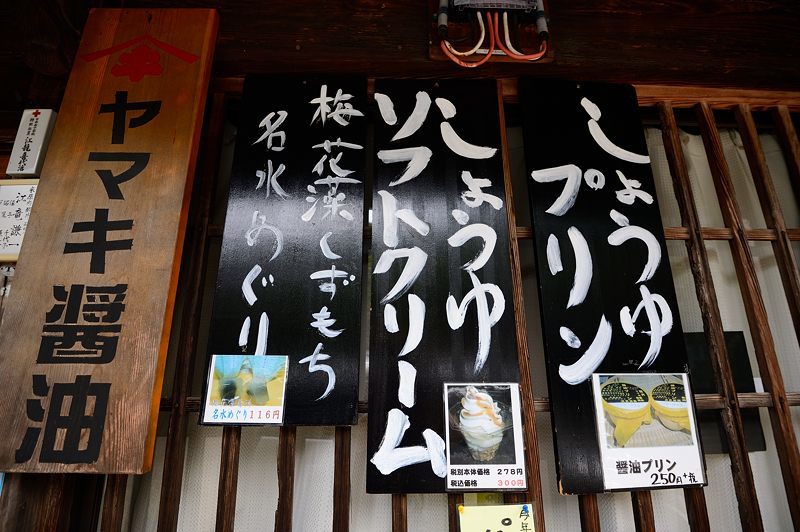 しょうゆ
プリン
醤油プリン
250円+税
しょうゆ
ソフトクリーム
税別本体価格 278円
税込価格 300円
梅花藻くずもち
名水めぐり
名水めぐり116円
ヤマキ醤油